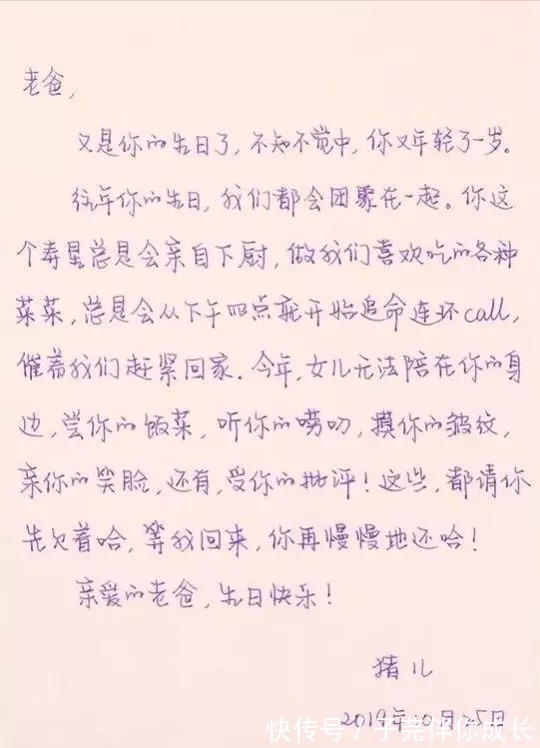 老爸,
又是你的生日了,不知不觉中,你又年轻了一岁。
往年你的生日,我们都会团聚在一起。你这
个寿星总是会亲自下厨,做我们喜欢吃的各种
菜菜,总是会从下午四点就开始追命连环call,
催着我们赶紧回家。今年,女儿无法陪在你的身
边,尝你的饭菜,听你的唠叨,摸你的皱纹,
亲你的笑脸,还有,受你的批评!这些,都请你
先欠着哈,等我回来,你再慢慢地还哈!
亲爱的老爸,生日快乐!
猪儿
2019年10月25日
快传号/子芫伴你成长